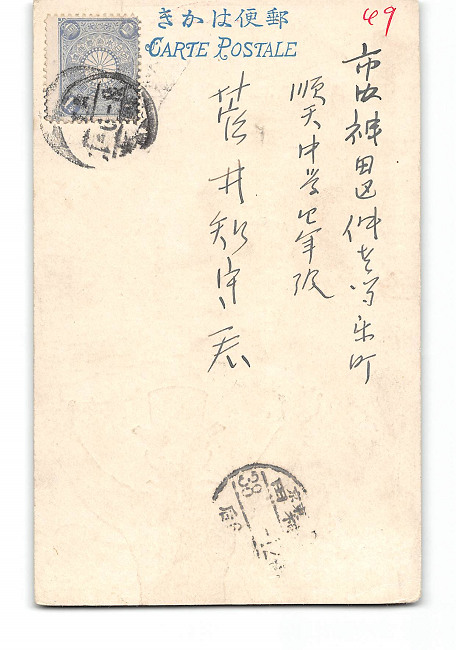 郵便はかき
CARTE POSTALE
49
市内神田区仲猿楽町
順天中学四年級
井 君
38